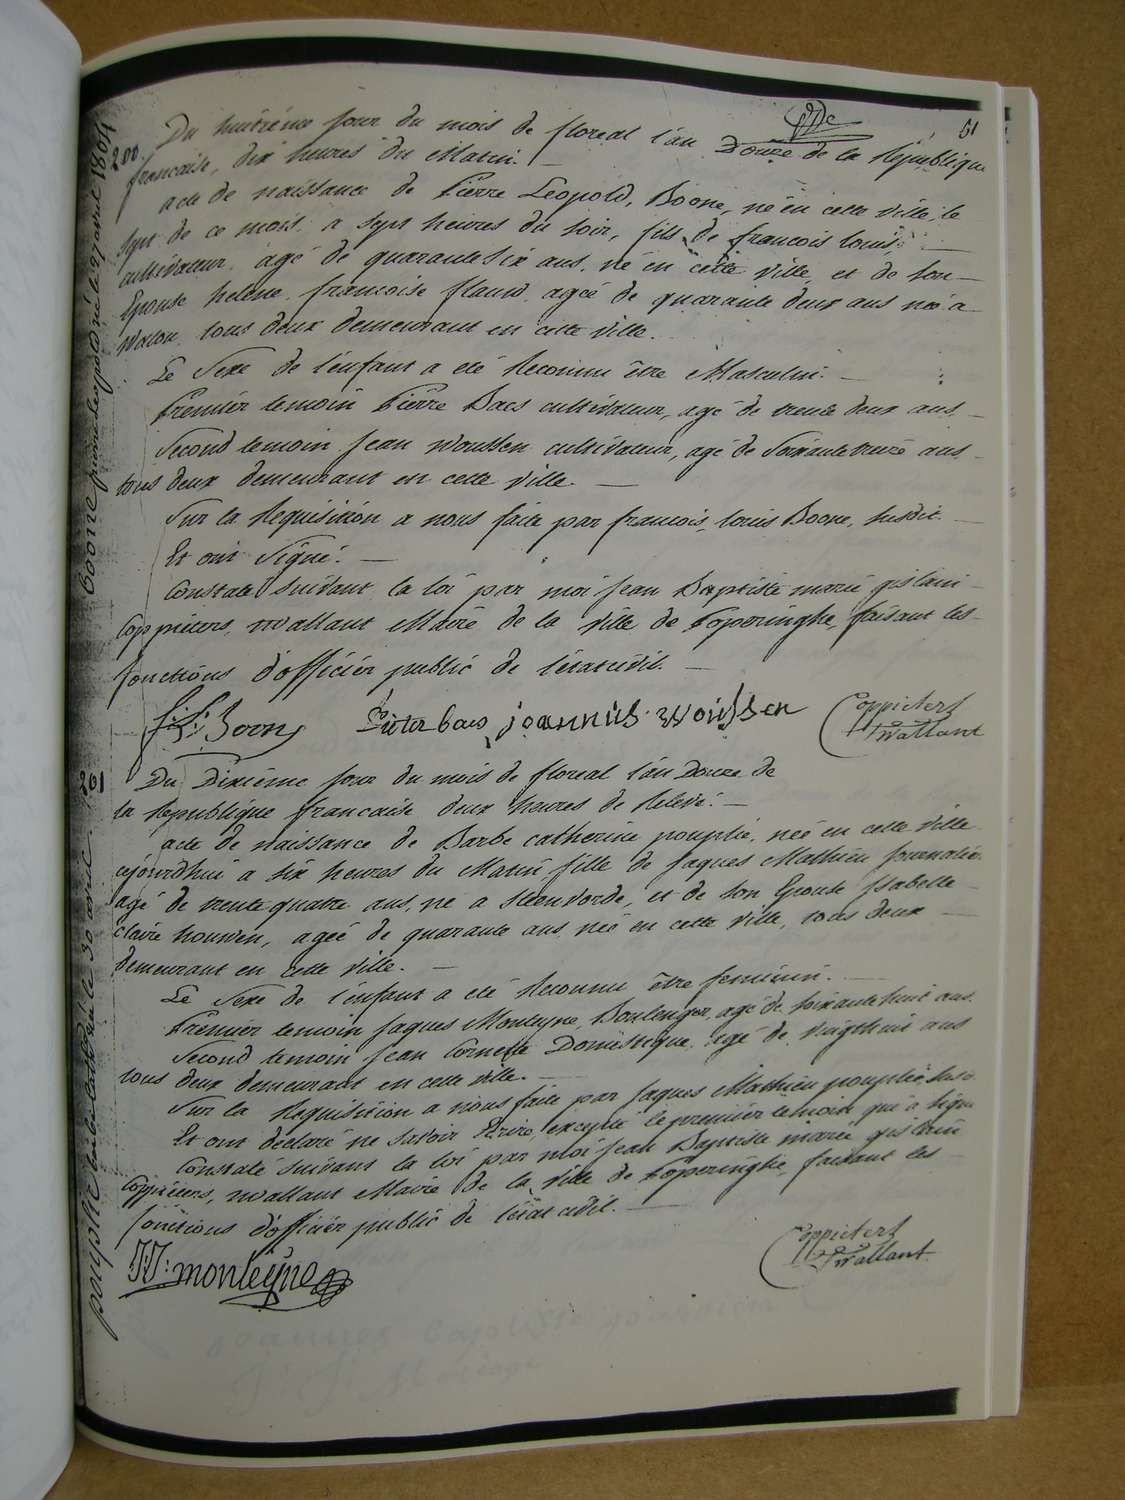 51
200.
Du huitième jour du mois de floreal l'an Douze de la Republique
francaise, dix heures du Matin. —
acte de naissance de Pierre Leopold, Boone, né en cette ville, le
sept de ce mois, a sept heures du soir, fils de francois louis, —
cultivateur, agé de quarante six ans, né en cette ville et de son —
Epouse helene francoise flauw, ageé de quarante deux ans neé a
Watou, tous deux demeurant en cette ville.
Le Sexe de l'enfant a eté Reconnu être Masculin. —
Premier temoin Pierre Baes cultivateur, agé de trente deux ans, —
Second temoin Jean Woussen cultivateur, agé de Soixante treize ans,
tous deux demeurant en cette ville. —
Sur la Requisition a nous faite par francois, louis Boone, susdit. —
Et ont Signé. —
Constaté Suivant la loi par moi Jean Baptiste marie gislain —
Coppieters, wallant Maire de la ville de Poperinghe, faisant les —
fonctions d'officier public de l'etat civil. —
f: L: Boone Pieter baes joannus Woussen Coppieters
Wallant
boone pierre leopold né le 27 avril 1804
261
Du Dixième jour du mois de floreal l'an Douze de
la Republique francaise deux heures de Relevé. —
acte de naissance de Barbe catherine pouplie, neé en cette ville
ajourdhui a six heures du Matin fille de Jaques Mathieu Journalier
agé de trente quatre ans, né a Steenvorde, et de son Epouse Isabelle —
claire houwen, ageé de quarante ans neé en cette ville, tous deux —
demeurant en cette ville. —
Le Sexe de l'enfant a eté Reconnu être feminin. —
Premier temoin Jaques Monteyne, Boulenger, agé de soixante huit ans.
Second temoin Jean Cornette Domestique, agé de vingt huit ans
tous deux demeurant en cette ville. —
Sur la Requisition a nous faite par Jaques Mathieu pouplie,
Et ont declaré ne savoir Ecrire, excepté le premier temoin qui a signé
Constaté suivant la loi par moi Jean Baptiste marie gislain
Coppieters, wallant Maire de la ville de Poperinghe, faisant les —
fonctions d'officier public de l'etat civil. —
J: J: monteyne Coppieters
Wallant
pouplie barbe cath: né le 30 avril